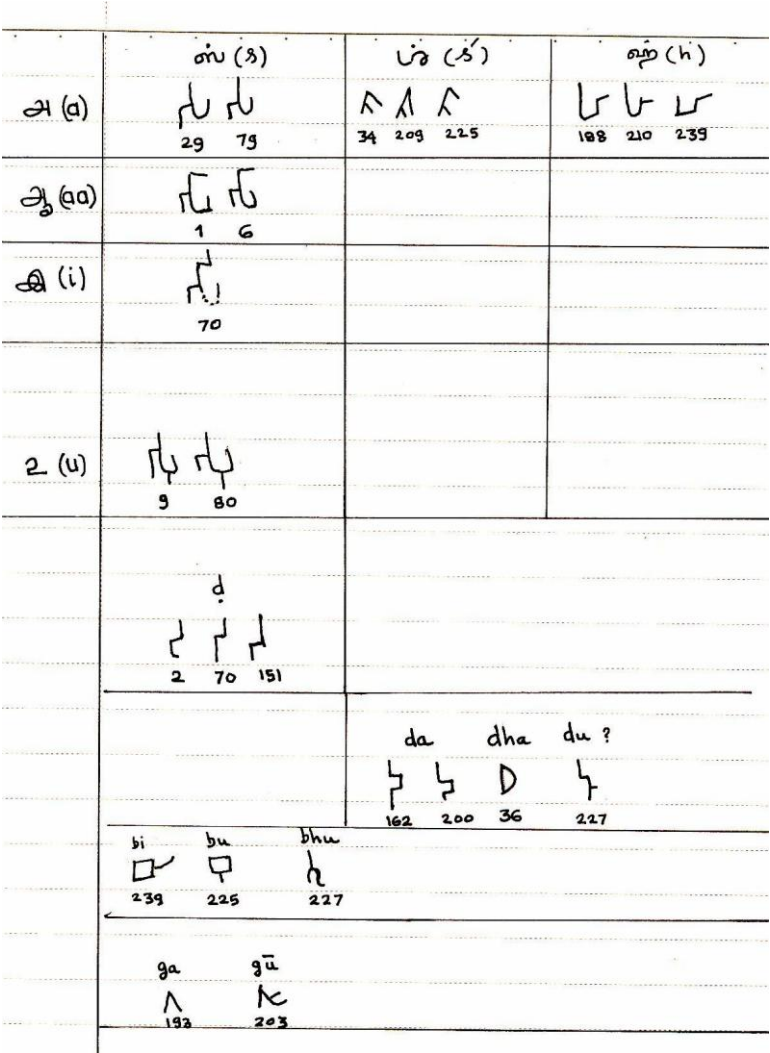 ஸ் (s) ஶ் (ś) ஹ் (h)
அ (a)
29 79 34 209 225 188 210 239
ஆ (aa)
1 6
இ (i)
70
உ (u)
9 80
ḍ
2 70 151
da dha du ?
162 200 36 227
bi bu bhu
239 225 227
ga gū
193 203